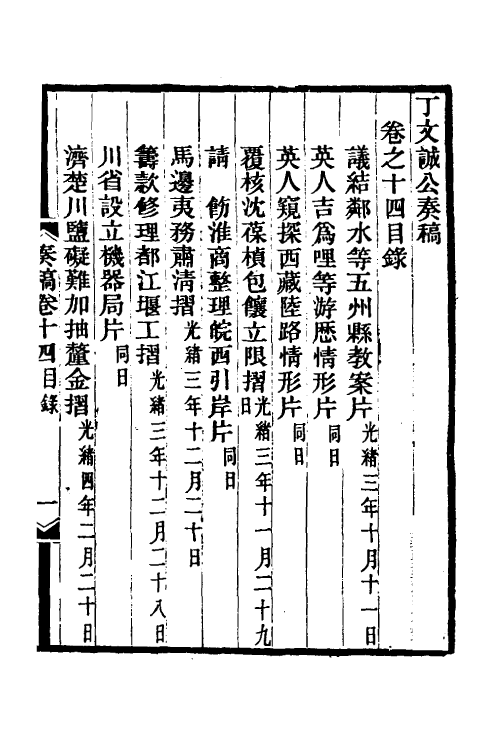 丁文誠公奏稿
卷之十四目錄
議結鄰水等五州縣教案片光緒三年十月十一日
英人吉爲哩等游歷情形片同日
英人窺探西藏陸路情形片同日
覆核沈葆楨包饟立限摺光緒三年十一月二十九日
請 飭淮商整理皖西引岸片同日
馬邊夷務肅清摺光緒三年十二月二十日
籌款修理都江堰工摺光緒三年十二月二十八日
川省設立機器局片同日
濟楚川鹽礙難加抽釐金摺光緒四年二月二十日
奏稿卷十四目錄 一